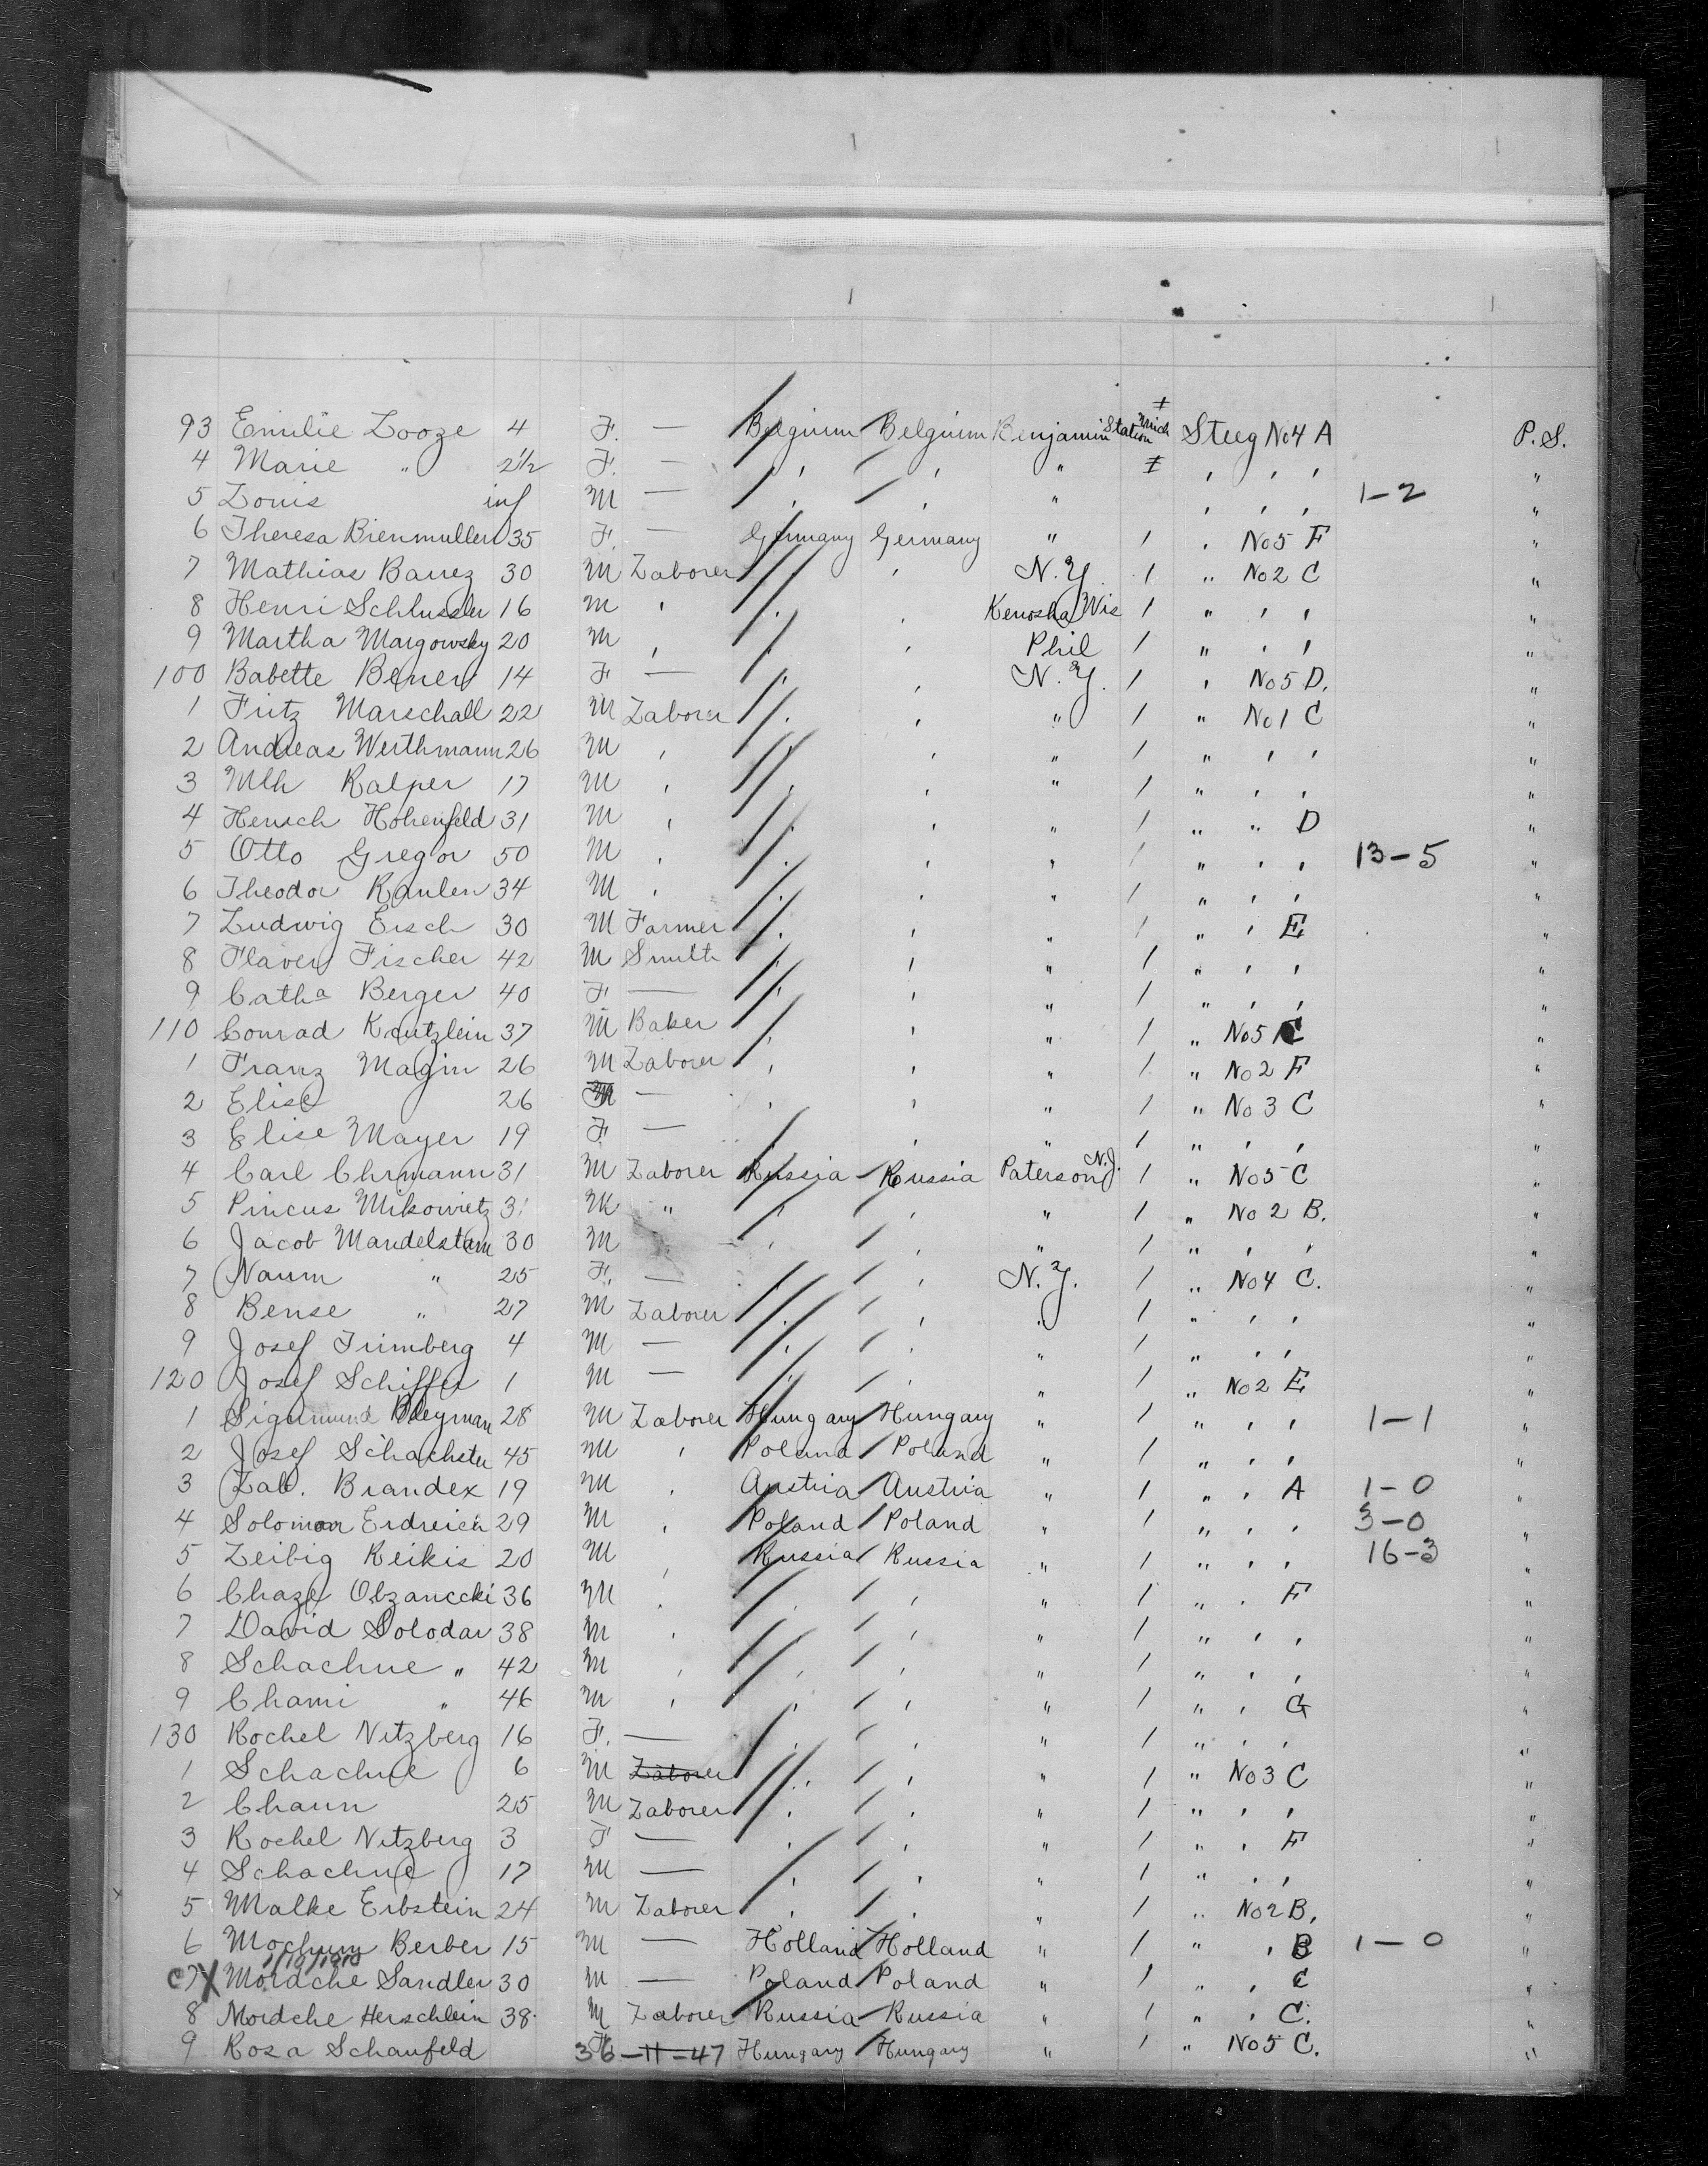 93 Emilie Looze 4 F. — Belgium Belgium Benjamin Station Mich ‡ Steeg No4 A P.S.
4 Marie " 2 1/2 F. — , , " ‡ , , , "
5 Louis inf M — , , " , , , 1-2 "
6 Theresa Bienmuller 35 F. — Germany Germany " 1 , No5 F "
7 Mathias Barrez 30 M Laborer , N.Y. 1 " No2 C "
8 Henri Schlussler 16 M , , , Kenosha Wis 1 " , , "
9 Martha Margowsky 20 M , , , Phil 1 " , , "
100 Babette Bener 14 F — , , N.Y. 1 , No5 D. "
1 Fritz Marschall 22 M Laborer , , " 1 " No1 C "
2 Andreas Werthmann 26 M , , , " 1 " , , "
3 Mth Kalper 17 M , , , " 1 " , , "
4 Hensch Hohenfeld 31 M , , , " 1 " " D "
5 Otto Gregor 50 M , , , , 1 " , , 13-5 "
6 Theodor Kaulen 34 M , , , " 1 " , , "
7 Ludwig Ersch 30 M Farmer , , " 1 " , E "
8 Flaver Fischer 42 M Smith , , " 1 " , , "
9 Catha Berger 40 F — , , " 1 " , , "
110 Conrad Krutzlein 37 M Baker , , " 1 " No5 C "
1 Franz Magin 26 M Laborer , , " 1 " No2 F "
2 Elise 26 F — , , " 1 " No3 C "
3 Elise Mayer 19 F — , " 1 " , , "
4 Carl Ehrmann 31 M Laborer Russia Russia Paterson N.J. 1 " No5 C "
5 Pincus Mikowietz 31 M " , , " 1 " No2 B. "
6 Jacob Mandelstam 30 M , , " 1 " , , "
7 Naum " 25 F. — , , N.Y. 1 " No4 C. "
8 Bense " 27 M Laborer , , " 1 " , , "
9 Josef Trimberg 4 M — , , " 1 " , , "
120 Josef Schiffer 1 M — , , " 1 " No2 E "
1 Sigismund Bleyman 28 M Laborer Hungary Hungary " 1 " , , 1-1 "
2 Josef Schachster 45 M , Poland Poland " 1 " , , "
3 Zall. Brandex 19 M , Austria Austria " 1 " , A 1-0 "
4 Solomon Erdreich 29 M , Poland Poland " 1 " , , 3-0 "
5 Leibig Reikis 20 M , Russia Russia " 1 " , , 16-3
6 Chaze Obzanccki 36 M , , , " 1 " , F "
7 David Solodar 38 M , , , " 1 " , , "
8 Schachne " 42 M , , , " 1 " , , "
9 Chami " 46 M , , , " 1 " , G "
130 Rochel Nitzberg 16 F. — , , " 1 " , , "
1 Schachne 6 M Laborer , , " 1 " No3 C "
2 Chaun 25 M Laborer , , " 1 " , , "
3 Rochel Nitzberg 3 F — , , " 1 " , F "
4 Schachne 17 M — , , " 1 " , , "
5 Malke Erbstein 24 M Laborer , , " 1 " No2 B. "
6 Mochum Berber 15 M — Holland Holland " 1 " , B 1-0 "
7 X Mordche Sandler 30 M — Poland Poland " 1 " , C "
8 Mordche Herschlein 38 M Laborer Russia Russia " 1 " , C. "
9 Rosa Schaufeld 36-11-47 Hungary Hungary " 1 " No5 C. "